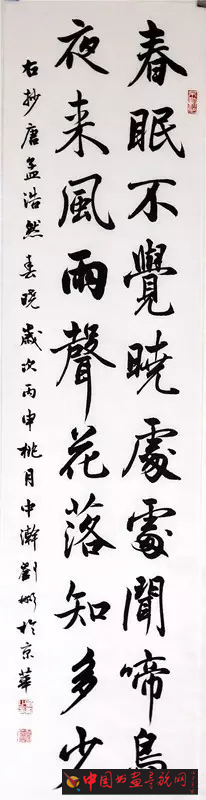 春眠不覺曉處處聞啼鳥
夜来風雨聲花落知多少
右抄唐孟浩然春晓歲次丙申桃月中澣劉彬於京華
中国书画导航网